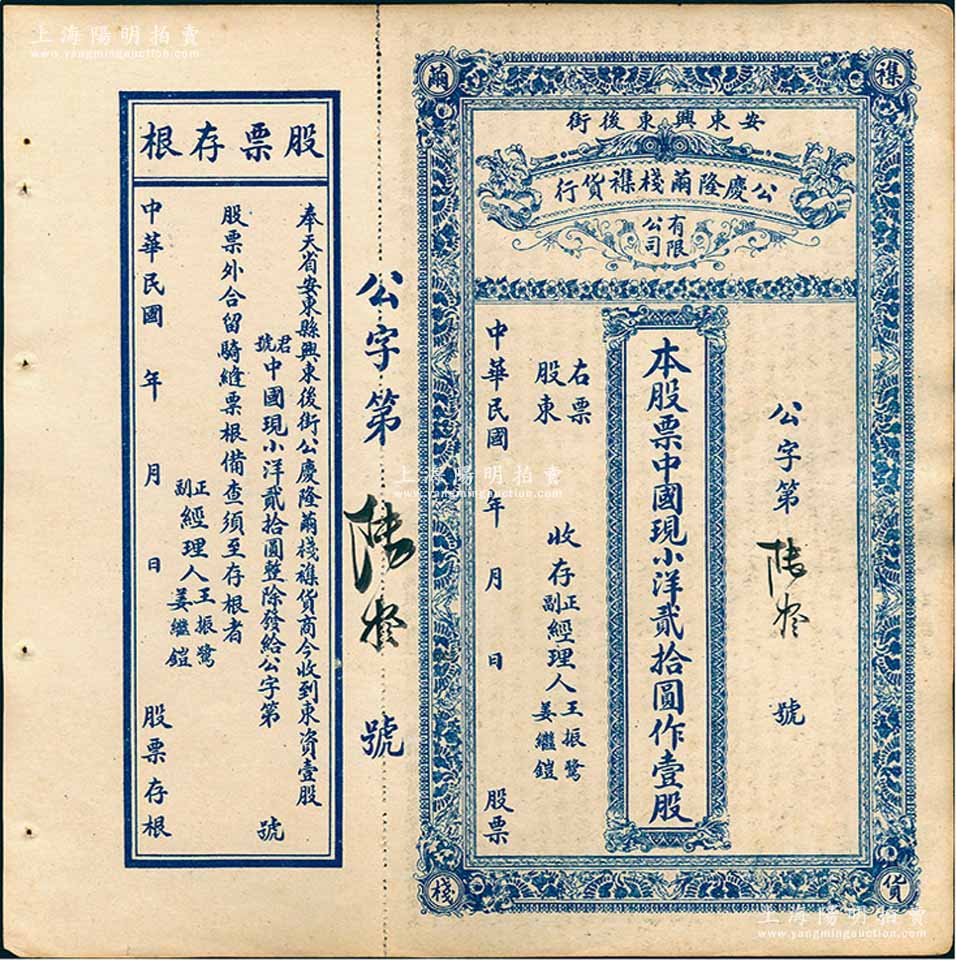 上海陽明拍賣
www.yangmingauction.com
安東興東後街
公慶隆繭棧襍貨行
有限公司
襍
繭
貨
棧
公字第陸拾號
本股票中國現小洋貳拾圓作壹股
右票股東 收存
正副經理人王振鷺姜繼鎧
中華民國 年 月 日 股票
公字第陸拾號
股票存根
奉天省安東縣興東後街公慶隆繭棧襍貨商今收到東資壹股
君號中國現小洋貳拾圓整除發給公字第 號
股票外合留騎縫票根備查須至存根者
正副經理人王振鷺姜繼鎧
中華民國 年 月 日 股票存根
上海陽明拍賣
www.yangmingauction.com
上海陽明拍賣
www.yangmingauction.com